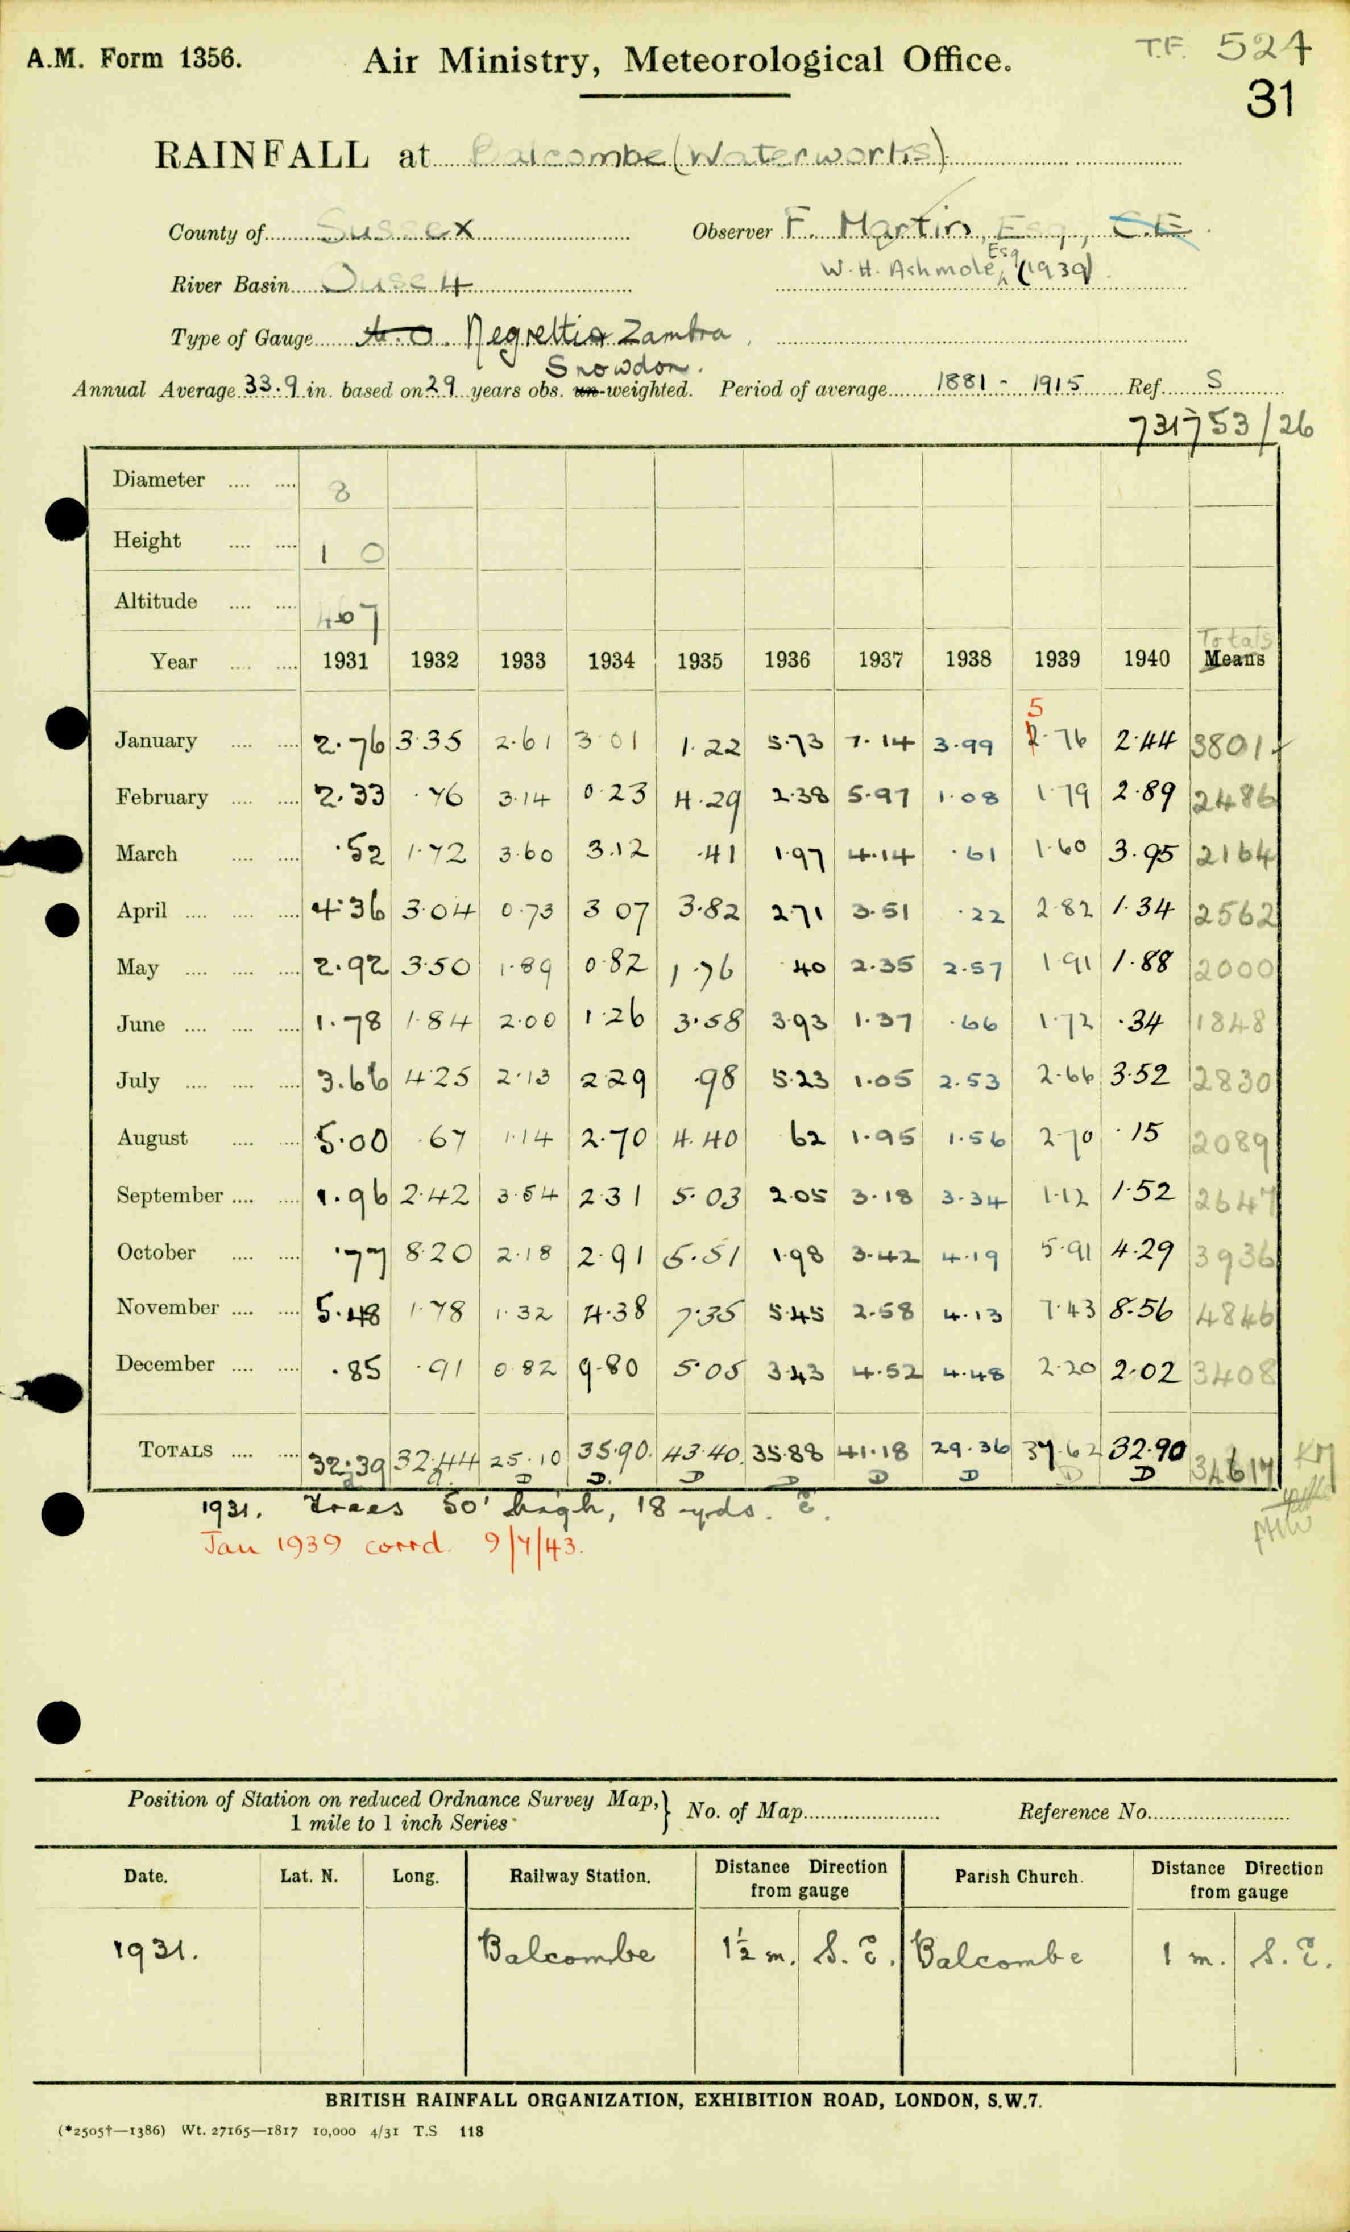 T.F. 524
A.M. Form 1356. Air Ministry, Meteorological Office.
31
RAINFALL at Balcombe (Waterworks)
County of Sussex Observer F. Martin, Esq., C.E.
River Basin Ouse 4 W. H. Ashmole, Esq (1939)
Type of Gauge M.O. Negretti & Zambra
Snowdon.
Annual Average 33.9 in. based on 29 years obs. un-weighted. Period of average 1881 - 1915 Ref. S
53/26
Diameter 8
Height 1 0
Altitude 467
Totals
Year 1931 1932 1933 1934 1935 1936 1937 1938 1939 1940 Means
5
January 2.76 3.35 2.61 3.01 1.22 5.73 7.14 3.99 2.76 2.44 3801
February 2.33 .76 3.14 0.23 4.29 2.38 5.97 1.08 1.79 2.89 2486
March .52 1.72 3.60 3.12 .41 1.97 4.14 .61 1.60 3.95 2164
April 4.36 3.04 0.73 3 07 3.82 2.71 3.51 .22 2.82 1.34 2562
May 2.92 3.50 1.89 0.82 1.76 40 2.35 2.57 1.91 1.88 2000
June 1.78 1.84 2.00 1.26 3.58 3.93 1.37 .66 1.72 .34 1848
July 3.66 4.25 2.13 2.29 .98 5.23 1.05 2.53 2.66 3.52 2830
August 5.00 .67 1.14 2.70 4.40 62 1.95 1.56 2.70 .15 2089
September 1.96 2.42 3.54 2.31 5.03 2.05 3.18 3.34 1.12 1.52 2647
October .77 8.20 2.18 2.91 5.51 1.98 3.42 4.19 5.91 4.29 3936
November 5.48 1.78 1.32 4.38 7.35 5.45 2.58 4.13 7.43 8.56 4846
December .85 .91 0.82 9.80 5.05 3.43 4.52 4.48 2.20 2.02 3408
TOTALS 32.39 32.44 25.10 35.90 43.40 35.88 41.18 29.36 37.62 32.90 34617
D D D D D D D D
1931. Trees 50' high, 18 yds. E.
Jan 1939 corrd. 9/7/43.
Position of Station on reduced Ordnance Survey Map, 1 mile to 1 inch Series No. of Map Reference No.
Date. Lat. N. Long. Railway Station. Distance Direction from gauge Parish Church. Distance Direction from gauge
1931. Balcombe 1½ m. S. E. Balcombe 1 m. S. E.
BRITISH RAINFALL ORGANIZATION, EXHIBITION ROAD, LONDON, S.W.7.
(*2505†—1386) Wt. 27165—1817 10,000 4/31 T.S 118